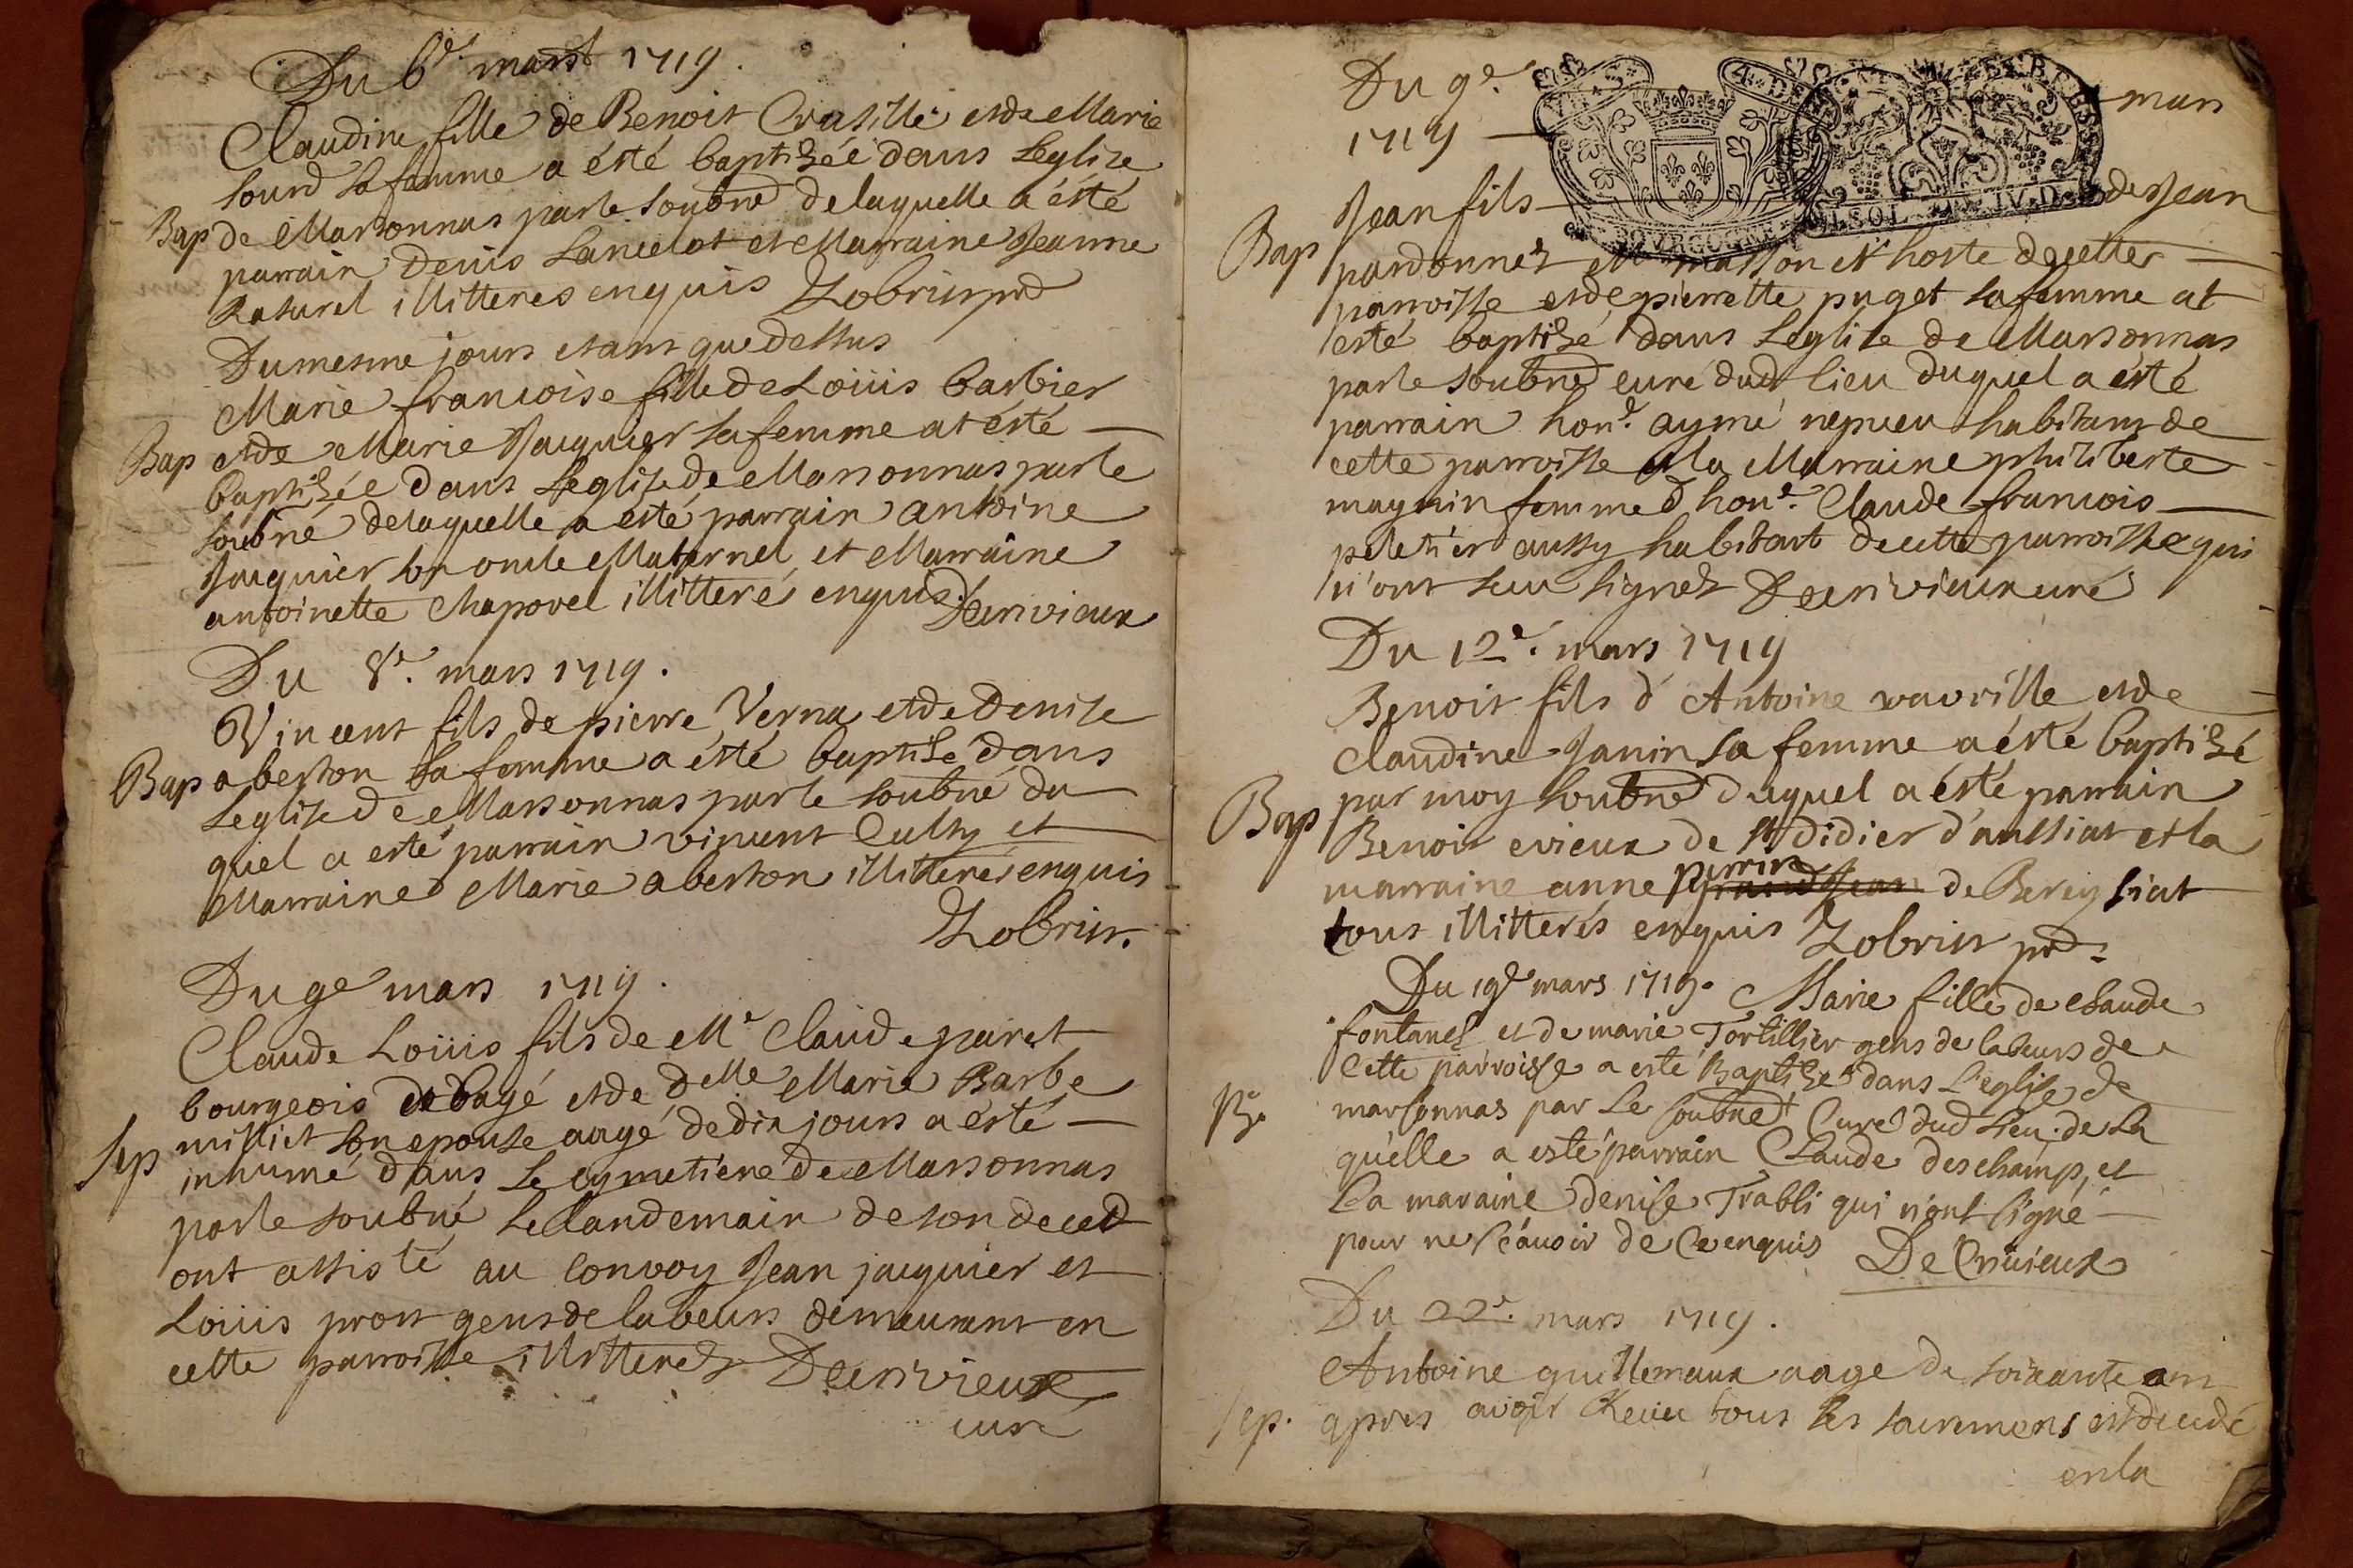 Du 6e mars 1719.
Claudine fille de Benoit et de Marie
sourd sa femme a ésté baptizée dans Leglize
Bap de Marsonnas par le soubné de laquelle a ésté
parrain Denis Lancelot et Marraine Jeanne
illitteres enquis Zobrist prd
Du mesme jours et ans que dessus
Marie francoise fille de Loüis barbier
Bap et de Marie Jaiquier sa femme at ésté
baptizée dans Leglize de Marsonnas par le
soubné de laquelle a esté parrain antoine
Jaiquier son oncle Maternel et Marraine
antoinette Chapovel illitteré enquis Decrivieux
Du 8e. mars 1719.
Vincent fils de pierre Verna et de Denise
Bap aberton sa femme a ésté baptisé dans
Leglize de Marsonnas par le soubné du
quel a esté parrain vincent Cussy et
Marraine Marie aberton illitterés enquis
Zobrist.
Du 9e mars 1719.
Claude Loüis fils de Me Claude paret
bourgeois de bagé et de delle Marie Barbe
Sep milliet son epouse aagé de dix jours a ésté
inhumé dans Le cymetiere de Marsonnas
par le soubné Le landemain de son deced
ont assisté au convoy Jean jaiquier et
Loüis prost gens de labeurs demeurant en
cette parroisse illitterez Decrivieux
curé
Du 9e. mars
1719
Jean fils de Jean
Bap pardonnet Me masson et hoste de cette
parroisse et de pierrette puget sa femme at
esté baptizé dans Leglize de Marsonnas
par le soubné curé dud lieu duquel a ésté
parrain hone. aymé nepueu habitant de
cette parroisse et la Marraine philiberte
magnin femme d'hone. Claude francois
peletier aussy habitant de cette parroisse qui
n'ont sceu signez Decrivieux curé
Du 12e. mars 1719
Benoit fils d'Antoine vavrille et de
Claudine Janin sa femme a ésté baptizé
Bap par moy soubné duquel a ésté parrain
Benoit evieux de st didier d'aussiat et la
perrin
marraine anne de Bereysiat
tous illitterés enquis Zobrist prd
Du 19e mars 1719. Marie fille de Claude
fontanel et de marie Tortillier gens de labeurs de
cette parroisse a esté Baptizée dans L'eglise de
B. marsonnas par le soubné Curé dud Lieu. de la
quelle a esté parrain Claude deschamp, et
La maraine denise Trabli qui n'ont signé
pour ne scauoir de ce enquis De Criuieux
Du 22e. mars 1719.
Antoine guillemaux aage de soixante ans
Sep. apres avoir Receu tous les sacremens est decedé
en la